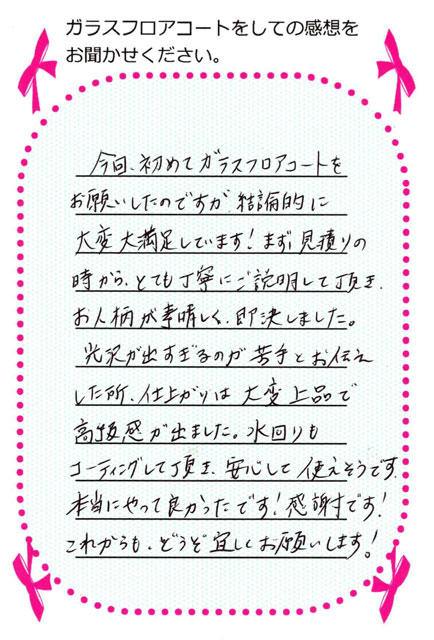 ガラスフロアコートをしての感想を
お聞かせください。
今回、初めてガラスフロアコートを
お願いしたのですが、結論的に
大変大満足しています!まず見積りの
時から、とても丁寧にご説明して頂き、
お人柄が素晴しく、即決しました。
光沢が出すぎるのが苦手とお伝え
した所、仕上がりは大変上品で
高級感が出ました。水回りも
コーティングして頂き、安心して使えそうです。
本当にやって良かったです!感謝です!
これからも、どうぞ宜しくお願いします!